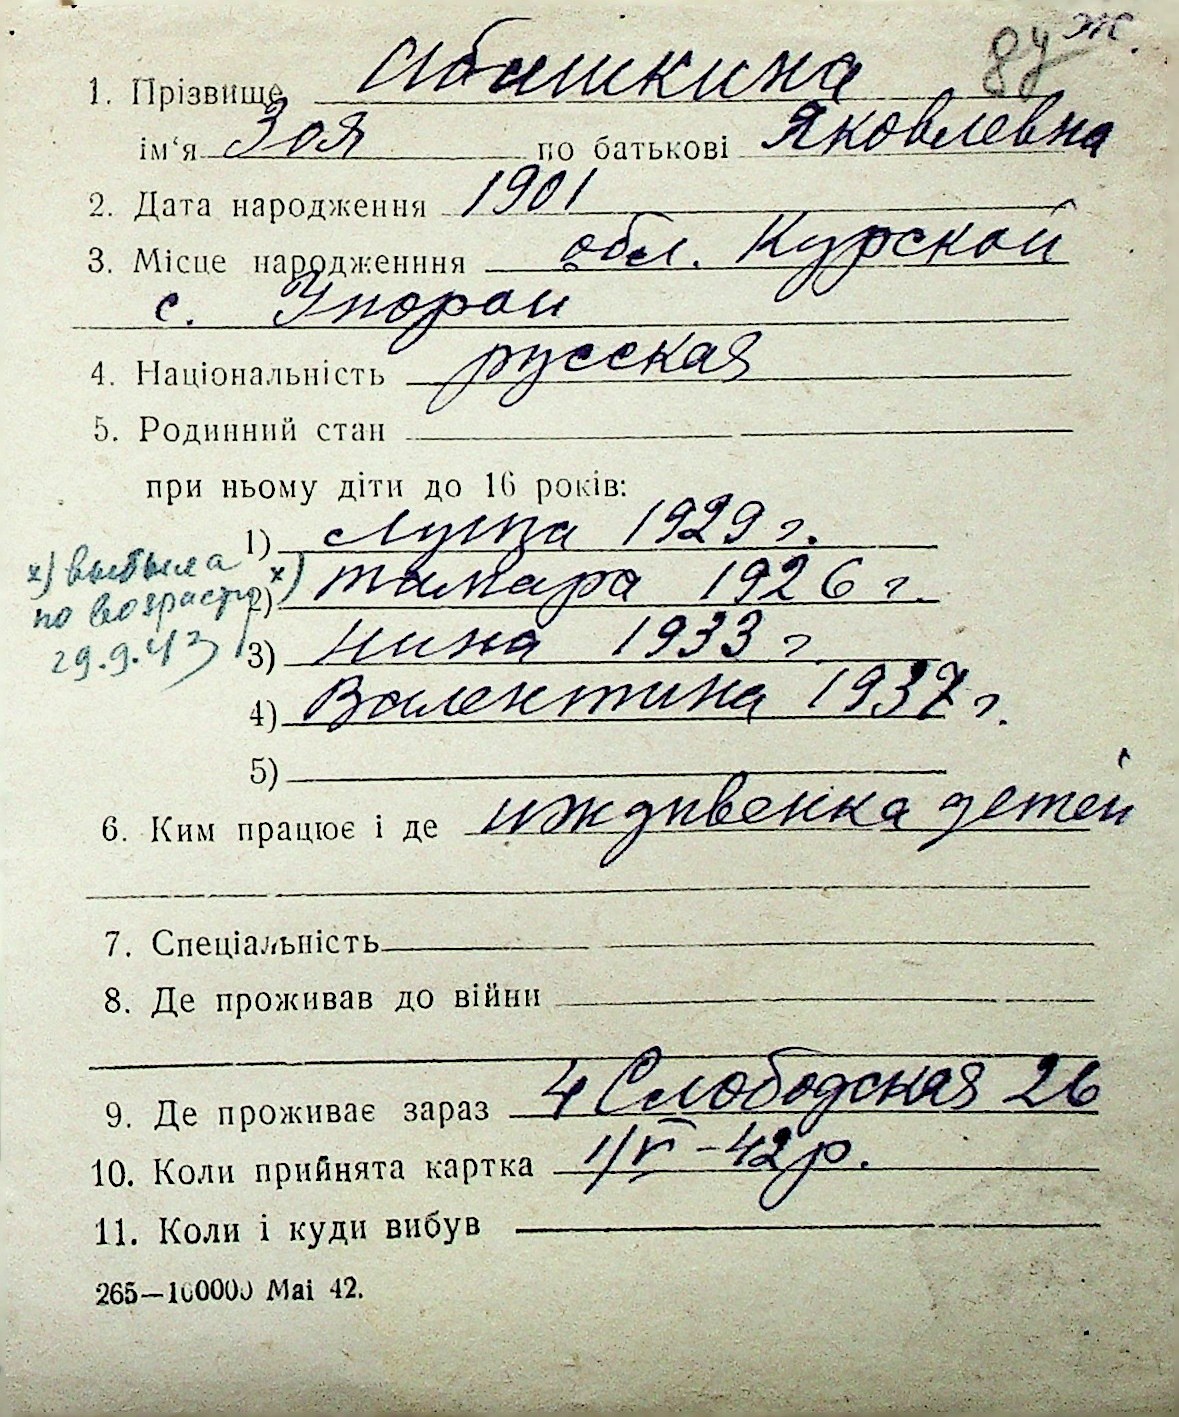 ж.
8У
1. Прізвище Абашкина
ім‘я Зоя по батькові Яковлевна
2. Дата народження 1901
3. Місце народженння обл. Курской
с. Упорой
4. Національність русская
5. Родинний стан
при ньому діти до 16 років:
1) Луиза 1929 г.
х) выбыла х)
2) Тамара 1926 г.
по возрасту
29.9.43
3) Нина 1933 г.
4) Валентина 1937 г.
5)
6. Ким працює і де иждивенка детей
7. Спеціальність
8. Де проживав до війни
9. Де проживає зараз 4 Слободская 26
10. Коли прийнята картка 1/VI -42 р.
11. Коли і куди вибув
265—100000 Mai 42.